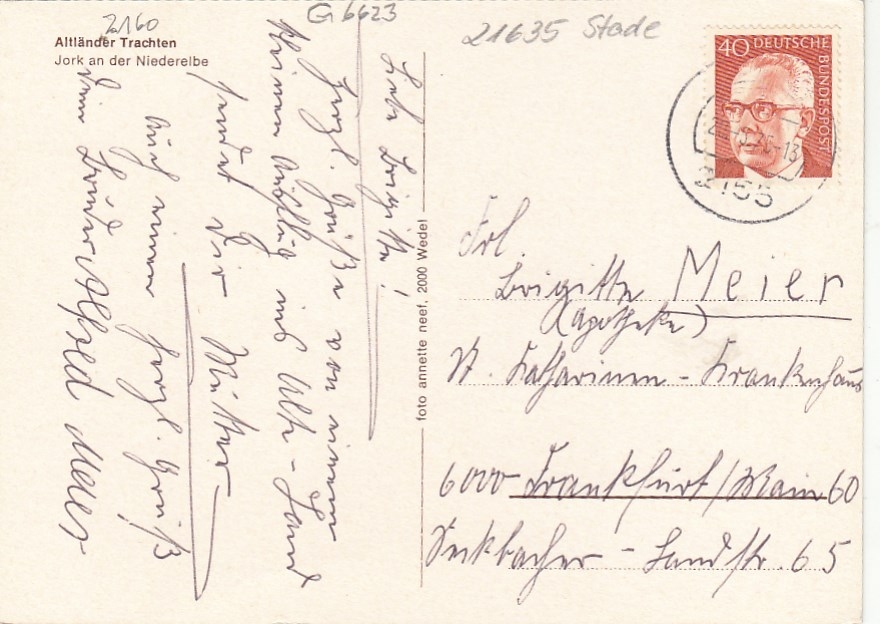 2160
G 6623
21635 Stade
Altländer Trachten
Jork an der Niederelbe
40 DEUTSCHE BUNDESPOST
2155
Liebe Brigitte!
Herzl. Grüße von einem
kleinen Ausflug ins Alte-Land
sendet Dir Mutter
Auch einen herzl. Gruß
Dein Bruder Alfred Meier
foto annette neef, 2000 Wedel
Frl.
Brigitte Meier
(Apotheke)
St. Katharinen-Krankenhaus
6000 Frankfurt/Main 60
Seckbacher-Landstr. 65